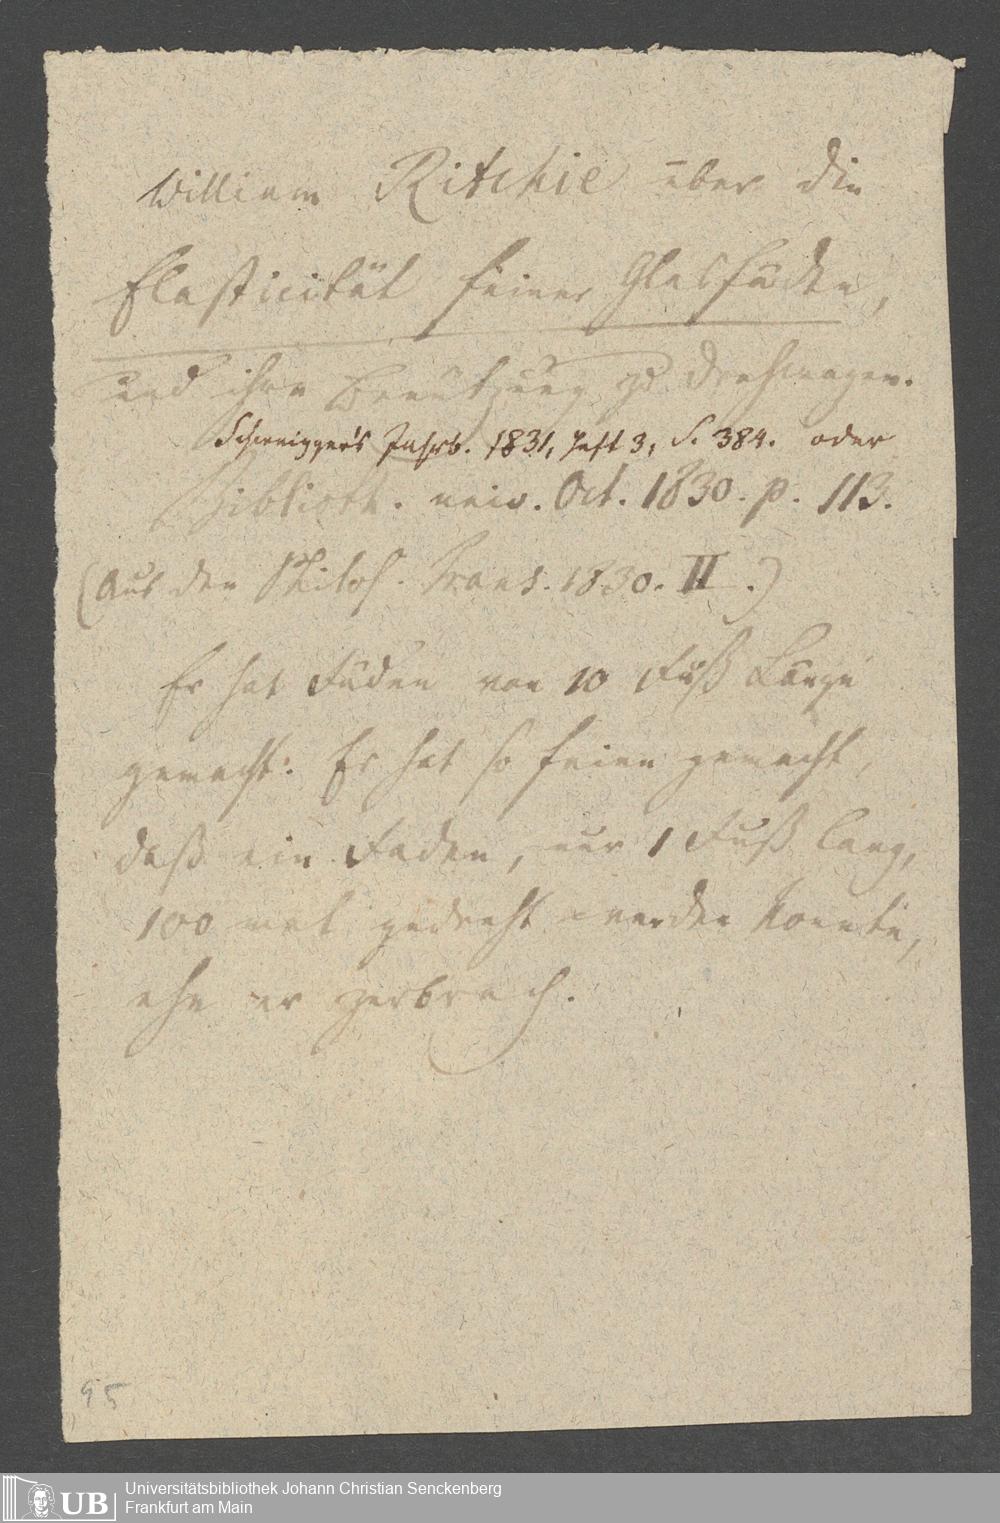 William Ritchie über die
Elasticität feiner Glasfäden,
und ihre Benutzung zu Drehwagen.
Schweigger's Jahrb. 1831, Heft 3, S. 384. oder
Biblioth. univ. Oct. 1830. p. 113.
(Aus den Philos. Trans. 1830. II.)
Er hat Fäden von 10 Fuß Länge
gemacht. Er hat so feine gemacht,
daß ein Faden, nur 1 Fuß lang,
100 mal gedreht werden konnte,
ehe er zerbrach.
95
UB
Universitätsbibliothek Johann Christian Senckenberg
Frankfurt am Main